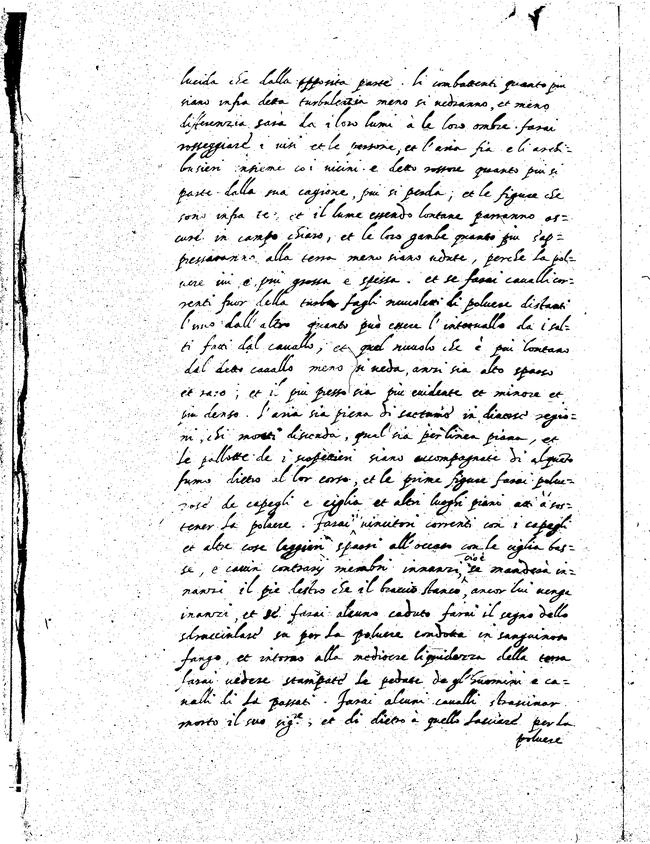 lucida che dalla opposita parte. li combattenti quanto più
siano infra detta turbulentia meno si vedranno, et meno
differenzia sarà da i loro lumi à le loro ombre. farai
rosseggiare i visi et le persone, et l'aria fia e li archi-
busieri insieme co i vicini. e detto rossore quanto più si
parte dalla sua cagione, più si perda; et le figure che
sono infra te, et il lume essendo lontane parranno os=
cure in campo chiaro, et le loro gambe quanto più s'ap=
pressaranno alla terra meno siano vedute, perche la pol=
uere iui è più grossa e spessa. et se farai cavalli cor=
renti fuor della turba fagli nuuoletti di poluere distanti
l'uno dall'altro quanto può essere l'interuallo da i sal=
ti fatti dal cauallo; et quel nuuolo che è più lontano
dal detto cauallo meno si ueda, anzi sia alto sparso
et raro; et il più presso sia più euidente et minore et
più denso. L'aria sia piena di saettume in diuerse regio=
ni, chi monti discenda, qual sia per linea piana, et
le pallotte de i scopettieri siano accompagnate di alquāto
fumo dietro al lor corso, et le prime figure farai polue=
rose de capegli e ciglia et altri luoghi piani atti à sos=
tener la poluere. Farai uincitori correnti con i capegli
et altre cose leggieri sparsi all'
con le ciglia bas=
se, e caccin contrarij membri innanzi, cioè se manderà in=
nanzi il piè destro che il braccio stanco, ancor lui uenga
inanzi, et se farai alcuno caduto farai il segno dello
sdrucciolare su per la poluere condotta in sanguinoso
fango, et intorno alla mediocre liquidezza della terra
farai uedere stampate le pedate de gl'huomini e ca=
ualli di là passati. Farai alcuni caualli strascinar
morto il suo sig.re; et di dietro à quello lasciare per la
poluere